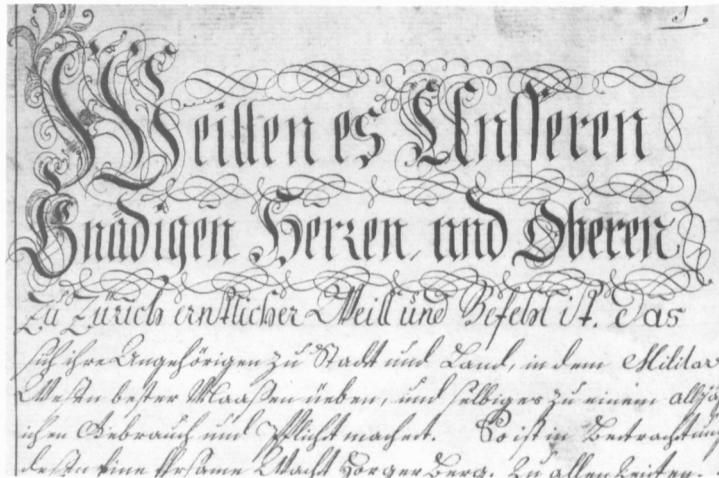 1.
Weillen es Unsseren
Gnädigen Herren, und Oberen
Zu Zürich ernstlicher Weill und Befehl ist. das
sich ihre Angehörigen zu Statt und Land, in dem Militar
Wesen bester Maaßen üeben, und selbiges zu einem alljäh
ichen Gebrauch und Pflicht machen. So ist in Betrachtung
dessen Eine Ehrsame Wacht Horger Berg. Zu allen Zeiten.